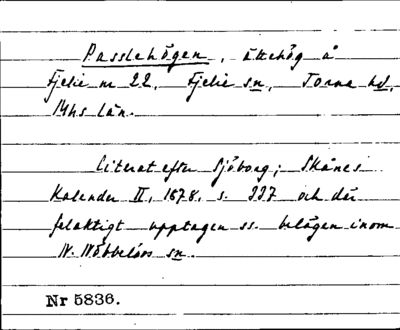 Passlehögen, ättehög å
Fjelie nr 22, Fjelie sn, Torna hd,
Mhs län.
Citerat efter Sjöborg; Skånes
Kalender II, 1878, s. 337 och där
felaktigt upptagen ss. belägen inom
N. Nöbbelövs sn.
Nr 5836.